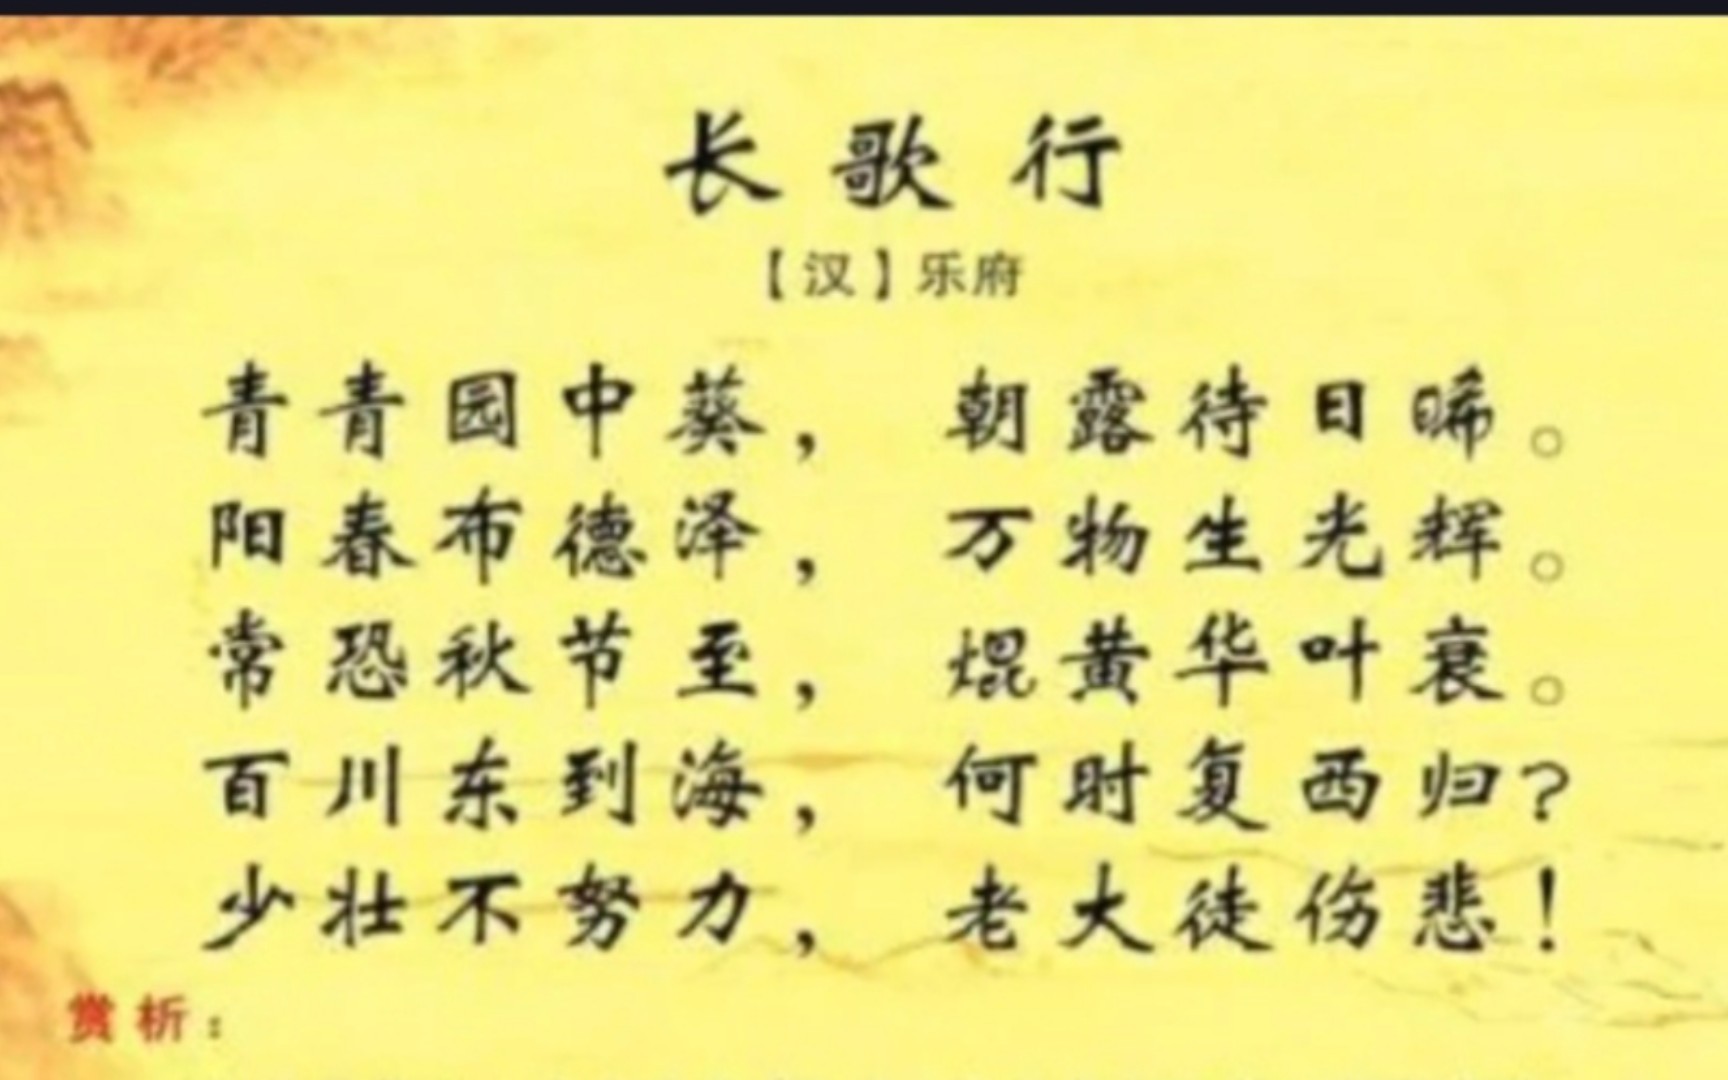 长歌行
【汉】乐府
青青园中葵，朝露待日晞。
阳春布德泽，万物生光辉。
常恐秋节至，焜黄华叶衰。
百川东到海，何时复西归？
少壮不努力，老大徒伤悲！
赏析：